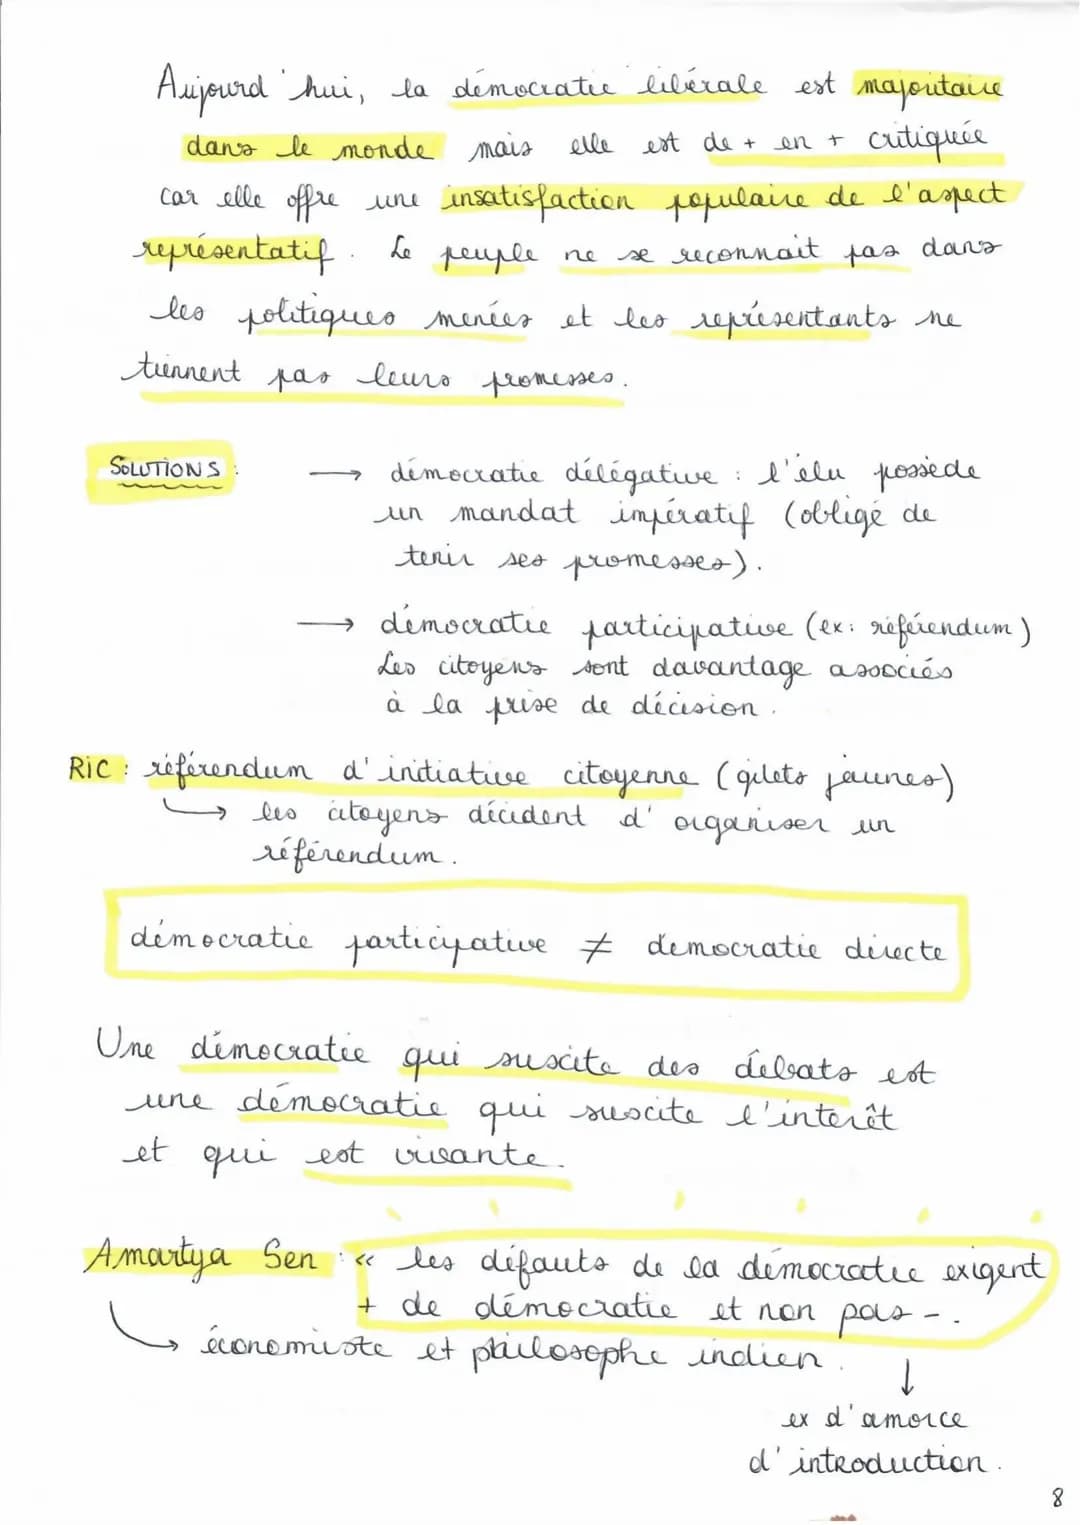 Aujourd'hui, la démocratie libérale est majoritaire
dans le monde mais elle est de + en + critiquée
car elle offre une insatisfaction populaire de l'aspect
représentatif. Le peuple ne se reconnait pas dans
les politiques menées et les représentants ne
tiennent pas leurs promesses.
SOLUTIONS : → démocratie délégative : l'élu possède
un mandat impératif (obligé de
tenir ses promesses).
→ démocratie participative (ex: référendum)
Les citoyens sont davantage associés
à la prise de décision.
RIC : référendum d'initiative citoyenne (gilets jaunes)
↳ les citoyens décident d'organiser un
référendum.
démocratie participative ≠ démocratie directe
Une démocratie qui suscite des débats est
une démocratie qui suscite l'interêt
et qui est vivante.
Amartya Sen : « les défauts de la démocratie exigent
+ de démocratie et non pas -.
↳ économiste et philosophe indien. ↓
ex d'amorce
d'introduction.
8